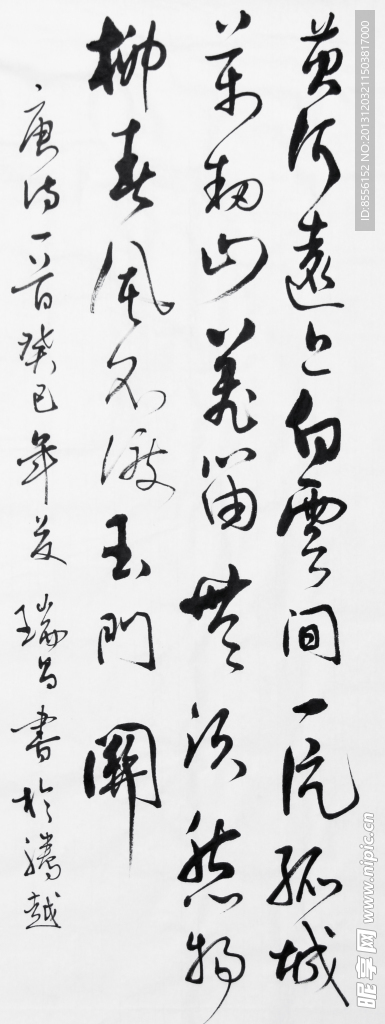 黄河遠上白雲間一片孤城
萬韌山羌笛無須怨楊
柳春風不渡玉門關
唐詩一首癸巳年夏瑞昌書於騰越
ID:8556152 NO:20131203211503817000
昵享网 www.nipic.cn